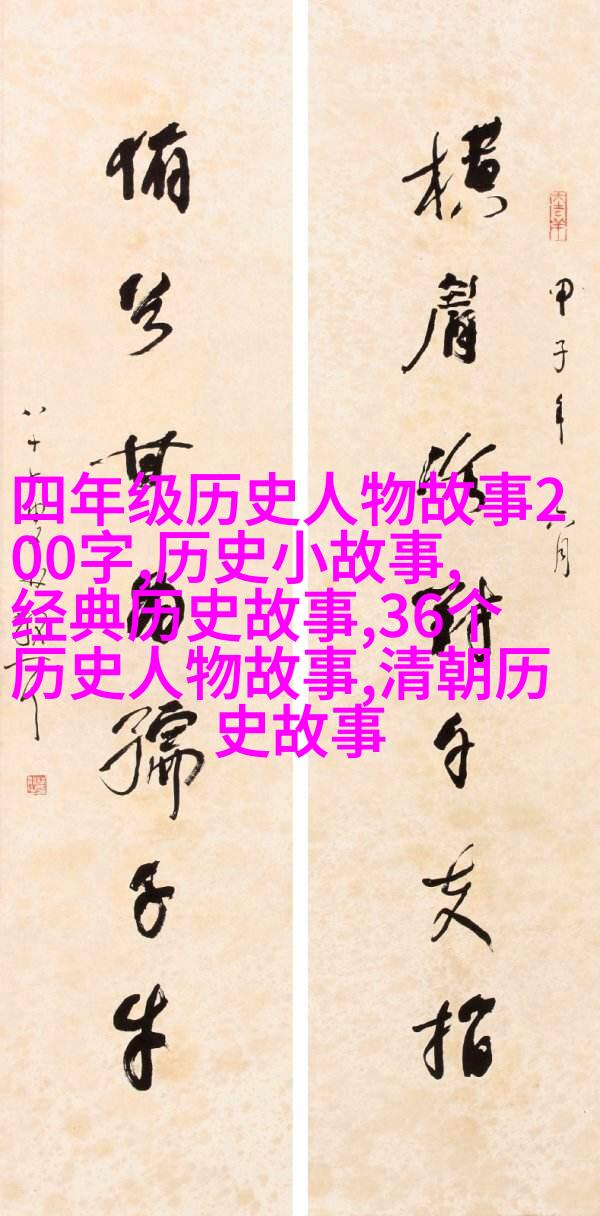 横眉冷對千夫指
甲子年六月
俯首甘為孺子牛
四年级历史人物故事2
00字,历史小故事,
经典历史故事,36个
历史人物故事,清朝历
史故事